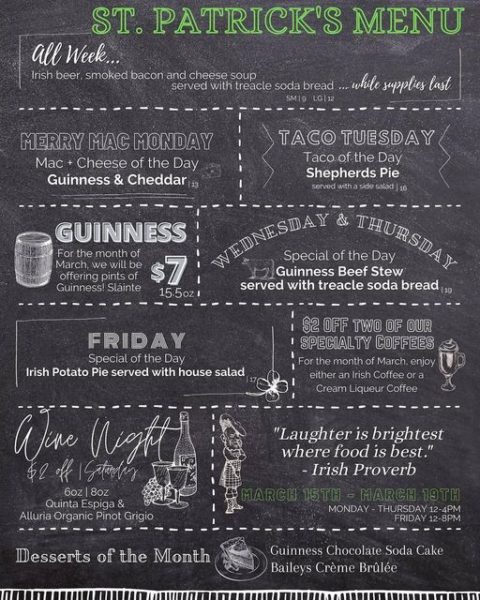 ST. PATRICK'S MENU
All Week...
Irish beer, smoked bacon and cheese soup
served with treacle soda bread ... while supplies last
SM | 9 LG | 12
MERRY MAC MONDAY
Mac + Cheese of the Day
Guinness & Cheddar | 13
TACO TUESDAY
Taco of the Day
Shepherds Pie
served with a side salad | 16
GUINNESS
For the month of
March, we will be
offering pints of
Guinness! Sláinte
$7
15.5oz
WEDNESDAY & THURSDAY
Special of the Day
Guinness Beef Stew
served with treacle soda bread | 19
FRIDAY
Special of the Day
Irish Potato Pie served with house salad
| 17
$2 OFF TWO OF OUR
SPECIALTY COFFEES
For the month of March, enjoy
either an Irish Coffee or a
Cream Liqueur Coffee
Wine Night
$2 off | Saturday
6oz | 8oz
Quinta Espiga &
Alluria Organic Pinot Grigio
"Laughter is brightest
where food is best."
- Irish Proverb
MARCH 15TH - MARCH 19TH
MONDAY - THURSDAY 12-4PM
FRIDAY 12-8PM
Desserts of the Month
Guinness Chocolate Soda Cake
Baileys Crème Brûlée